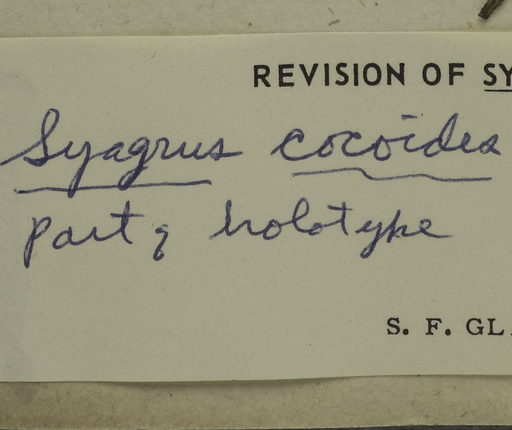 REVISION OF SY
Syagrus cocoides
part of holotype
S. F. GL